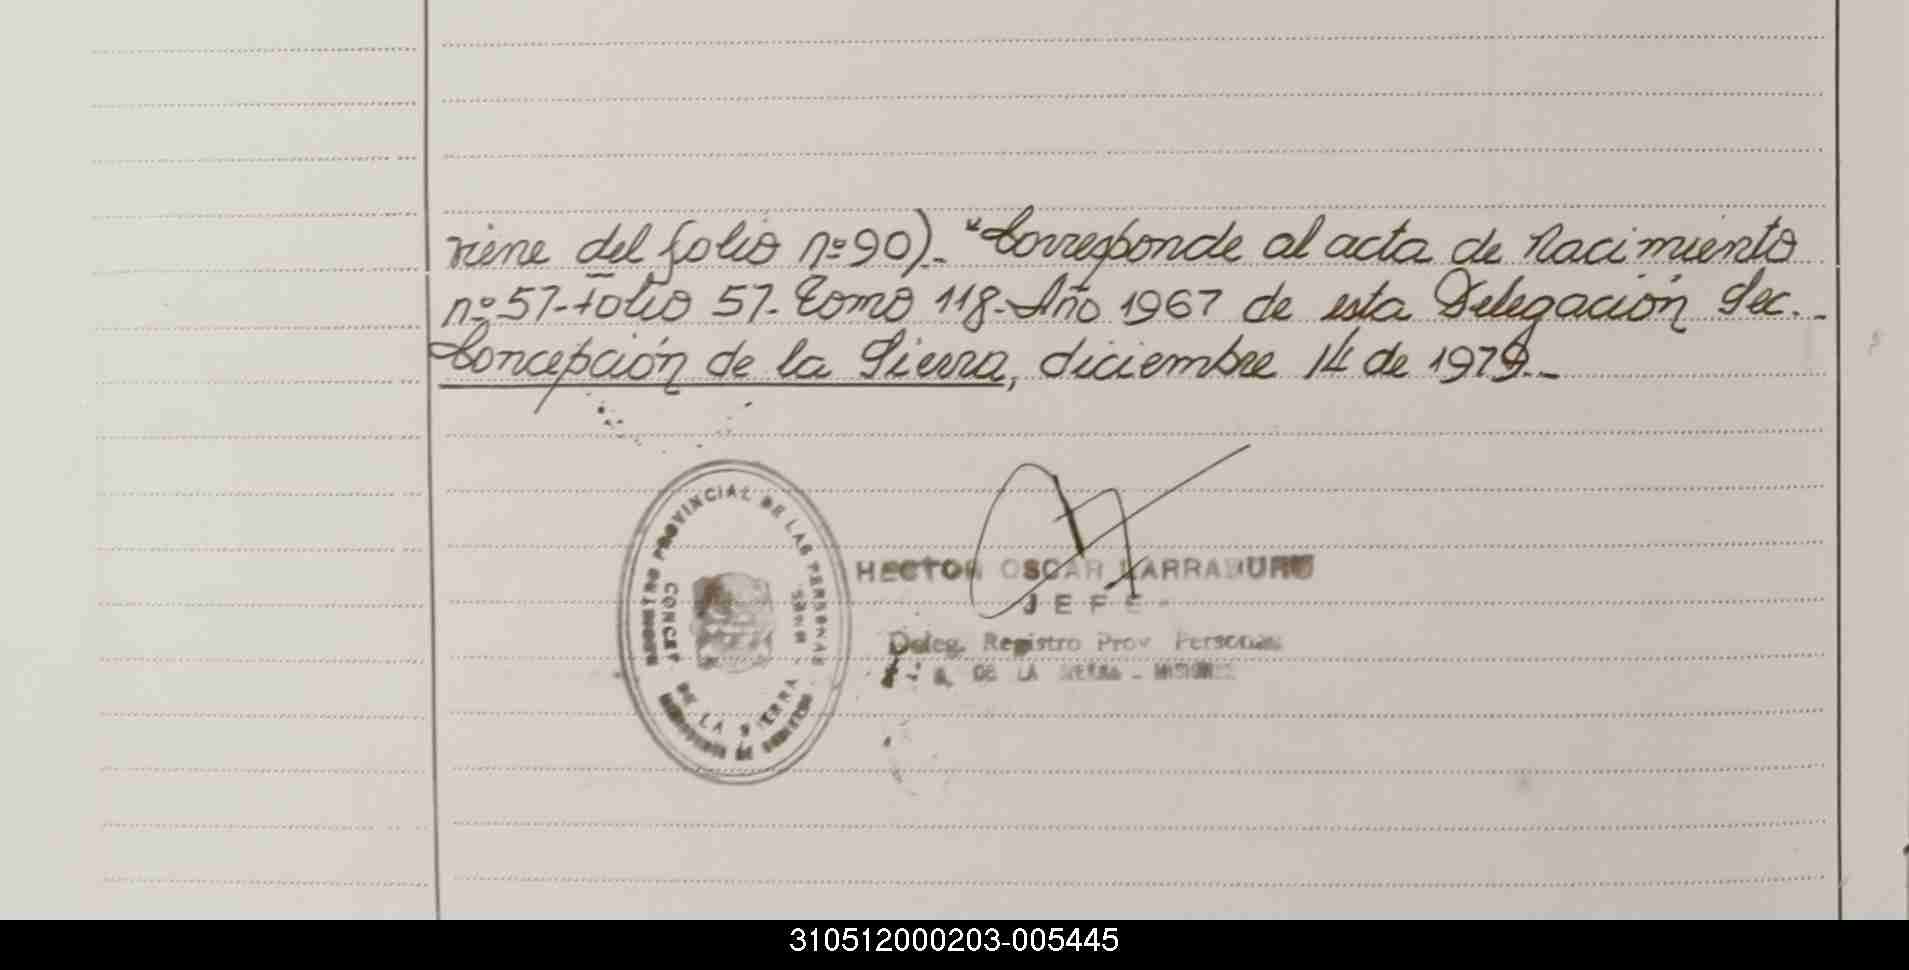 viene del folio nº 90)_ "Corresponde al acta de Nacimiento
nº 57-Folio 57- Tomo 118-Año 1967 de esta Delegación Sec._
Concepción de la Sierra, diciembre 14 de 1979._
REGISTRO PROVINCIAL DE LAS PERSONAS
CONCEP DE LA SIERRA
HECTOR OSCAR LARRABURU
JEFE
Deleg. Registro Prov Personas
DE LA SIERRA - MISIONES
310512000203-005445